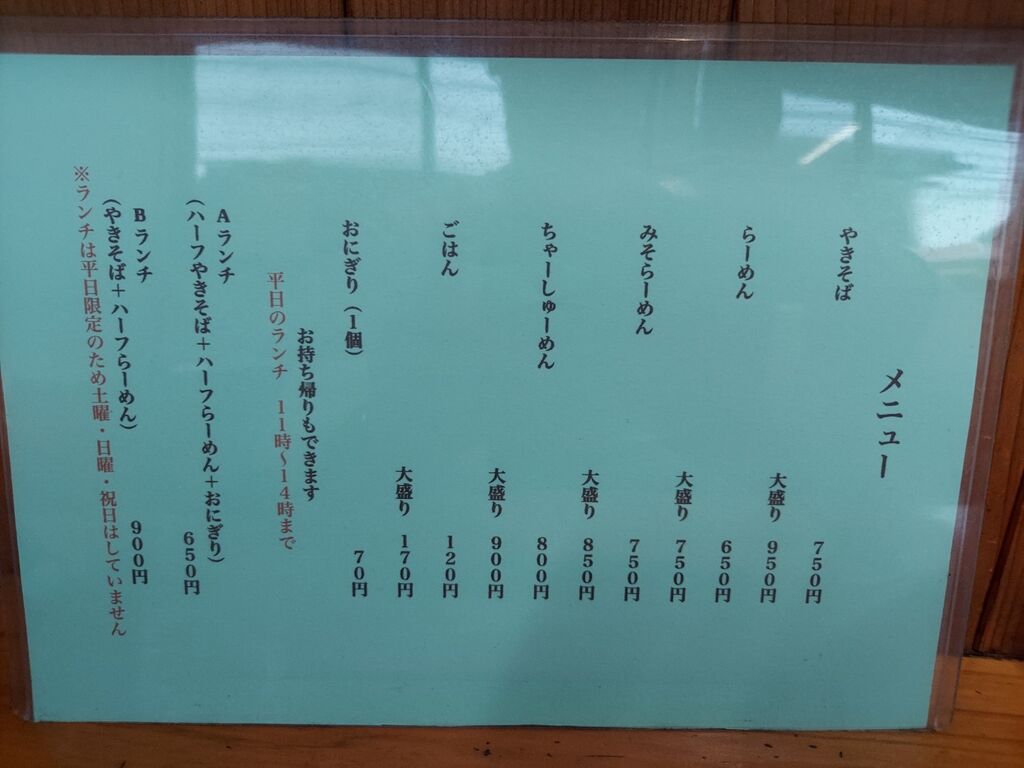 メニュー
やきそば　750円
大盛り　950円
らーめん　650円
大盛り　750円
みそらーめん　750円
大盛り　850円
ちゃーしゅーめん　800円
大盛り　900円
ごはん　120円
大盛り　170円
おにぎり（1個）　70円
お持ち帰りもできます
平日のランチ　11時～14時まで
Aランチ
（ハーフやきそば＋ハーフらーめん＋おにぎり）　650円
Bランチ
（やきそば＋ハーフらーめん）　900円
※ランチは平日限定のため土曜・日曜・祝日はしていません